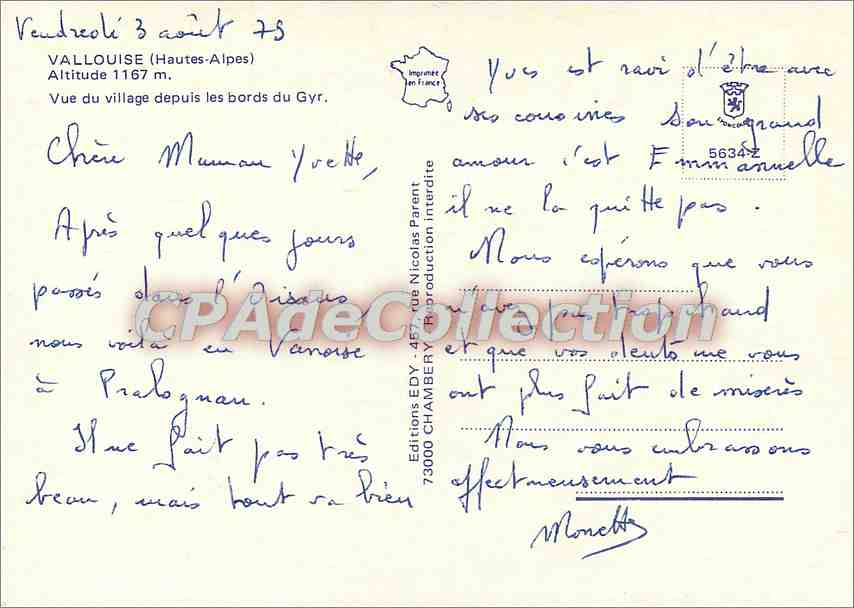 Vendredi 3 août 79
VALLOUISE (Hautes-Alpes)
Altitude 1167 m.
Vue du village depuis les bords du Gyr.
Imprimée
en France
Chère Maman Yvette,
Après quelques jours
passés dans l'Oisans,
nous voilà en Vanoise
à Pralognan.
Il ne fait pas très
beau, mais tout va bien
Editions EDY - 457, rue Nicolas Parent
73000 CHAMBERY - Reproduction interdite
5634-Z
Yves est ravi d'être avec
ses cousines Son grand
amour c'est Emmanuelle
il ne la quitte pas.
Nous espérons que vous
n'avez pas trop chaud
et que vos dents ne vous
ont plus fait de misères
Nous vous embrassons
affectueusement
Monette
CPAdeCollection